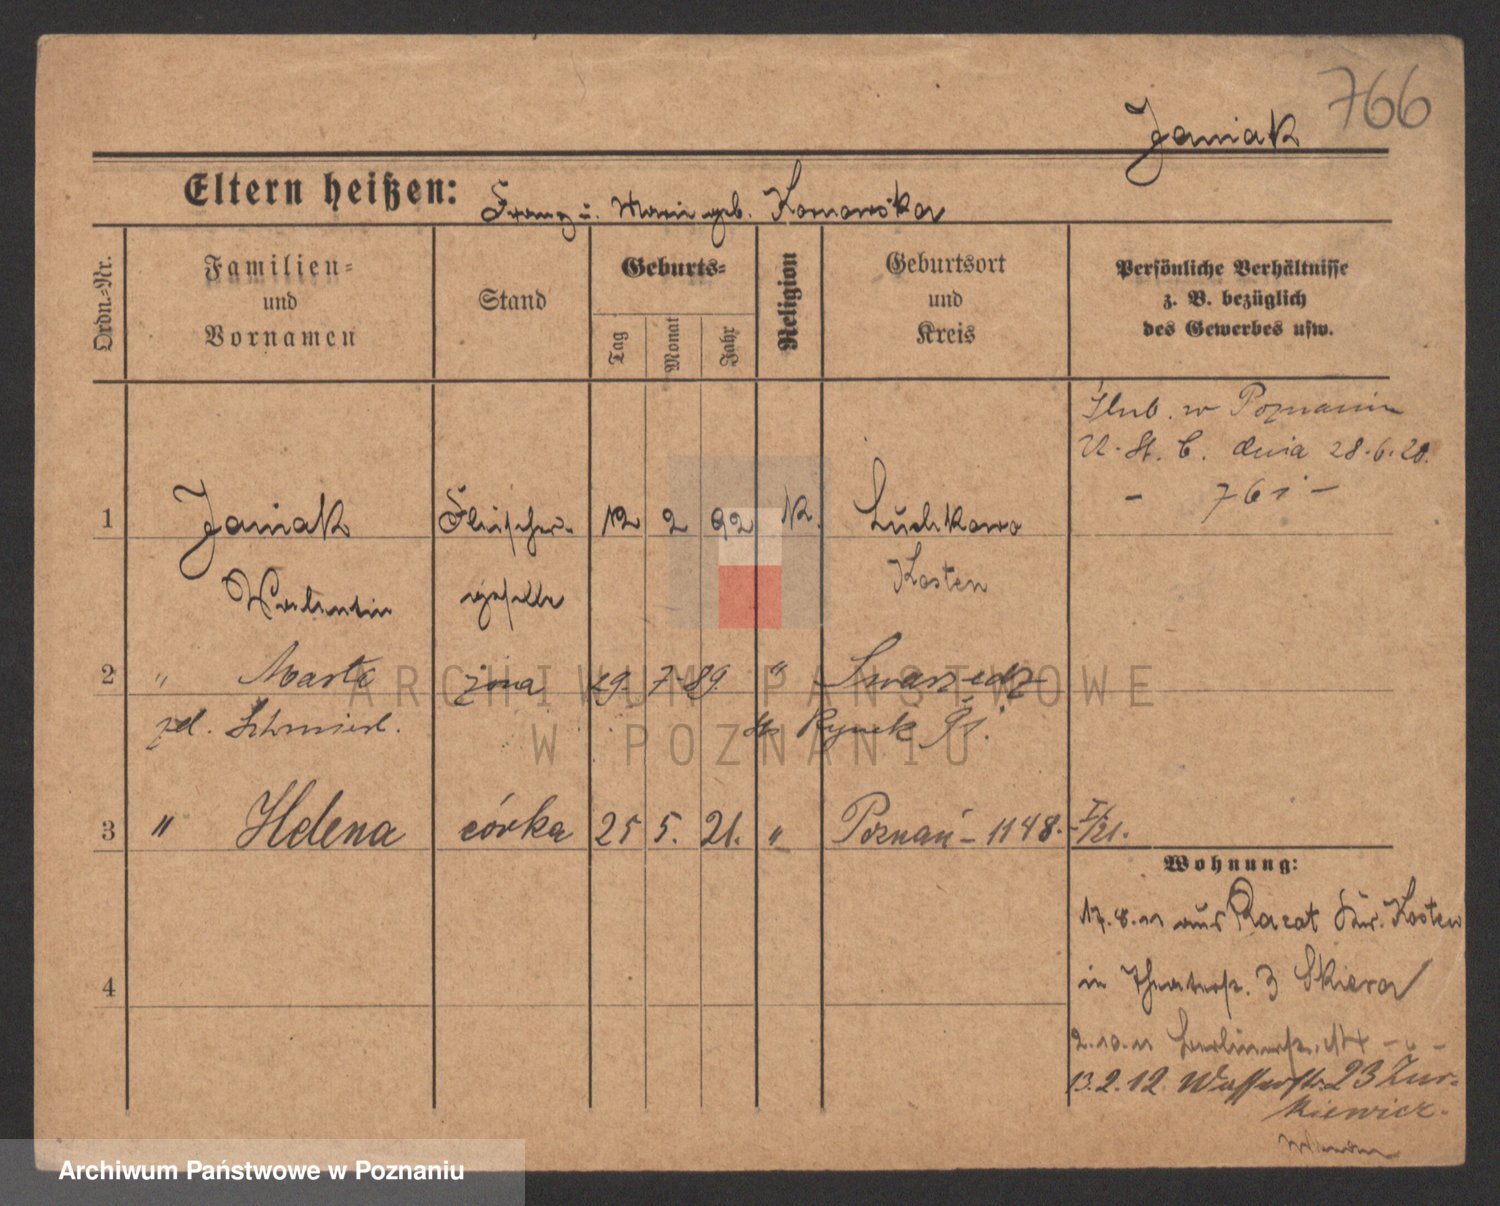 766
Janiak
Eltern heißen: Franz u. Marie geb. Komorowska
Ordn.-Nr.
Familien-
und
Vornamen
Stand
Geburts-
Tag
Monat
Jahr
Religion
Geburtsort
und
Kreis
Persönliche Verhältnisse
z. B. bezüglich
des Gewerbes usw.
Ślub. w Poznaniu
U. St. C. dnia 28.6.20.
- 761 -
1 Janiak Fleischer- 12 2 92 K.
Valentin geselle Kosten
2 " Marta żona 29. 7. 89. " Swarzędz
zd. Schmiedt. St. Rynek 91.
3 " Helena córka 25 5. 21. " Poznań - 1148. - I/21.
Wohnung:
17.8.11 aus Racat Kr. Kosten
4
in Theaterstr. 3 Skiera
2.10.11 Berlinerstr. 14 - " -
13.2.12 Wasserstr. 23 Zur-
kiewicz.
ARCHIWUM PAŃSTWOWE
W POZNANIU
Archiwum Państwowe w Poznaniu